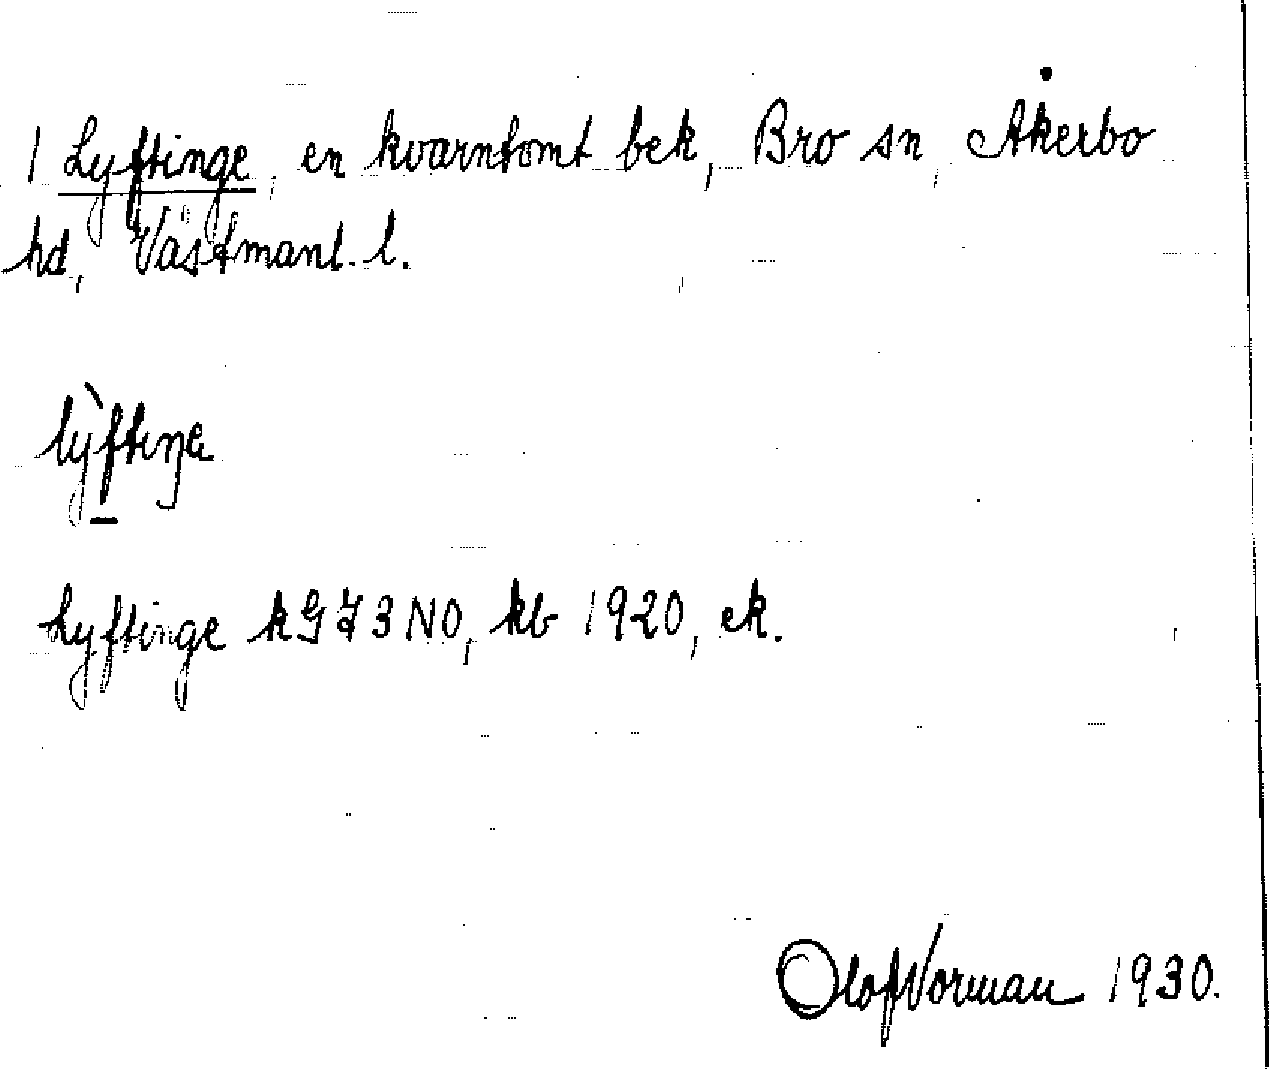 1 Lyftinge, en kvarntomt bek, Bro sn, Åkerbo
hd, Västmanl. l.
lỳftiŋe
Lyftinge kGJ3NO, kb 1920, ek.
Olof Norman 1930.